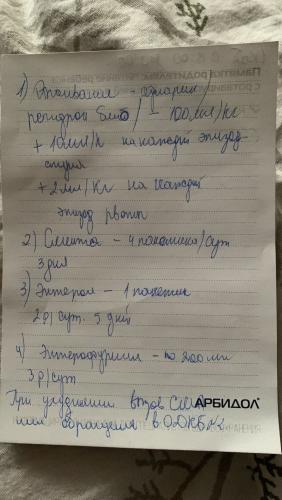 1) Отпаивание – одна
регидрон био / – 100 мл/кг
+ 10 мл/к на каждый эпизод
стула
+ 2 мл/кг на каждый
эпизод рвоты
2) Смекта – 4 пакетика/сут
3 дня
3) Энтерол – 1 пакетик
2 р/сут. 5 дней
4) Энтерофурил – по 200 мг
3 р/сут
При ухудшении вызов СМП
АРБИДОЛ
или обращения в ОДКБ№